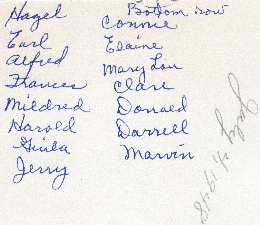 Hazel
Earl
Alfred
Frances
Mildred
Harold
Jerry
Bottom row
Connie
Elaine
Mary Lou
Clare
Donald
Darrell
Marvin
July 4, 1948